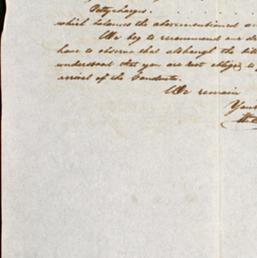 Petty charges. . . . .
which balances the abovementioned
We beg to recommend our
have to observe that altho the
understood that you are not obliged to
arrival of the
We remain
Your